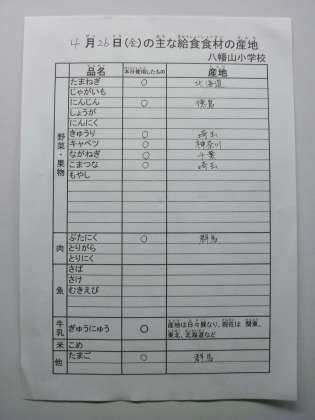 4月26日(金)の主な給食食材の産地
八幡山小学校
品名 本日使用したもの 産地
野菜・果物
たまねぎ ○ 北海道
じゃがいも
にんじん ○ 徳島
しょうが
にんにく
きゅうり ○ 埼玉
キャベツ ○ 神奈川
ながねぎ ○ 千葉
こまつな ○ 埼玉
もやし
肉
ぶたにく ○ 群馬
とりがら
とりにく
魚
さば
さけ
むきえび
牛乳 ぎゅうにゅう ○ 産地は日々異なり、現在は 関東、
東北、北海道など
米 こめ
他 たまご ○ 群馬